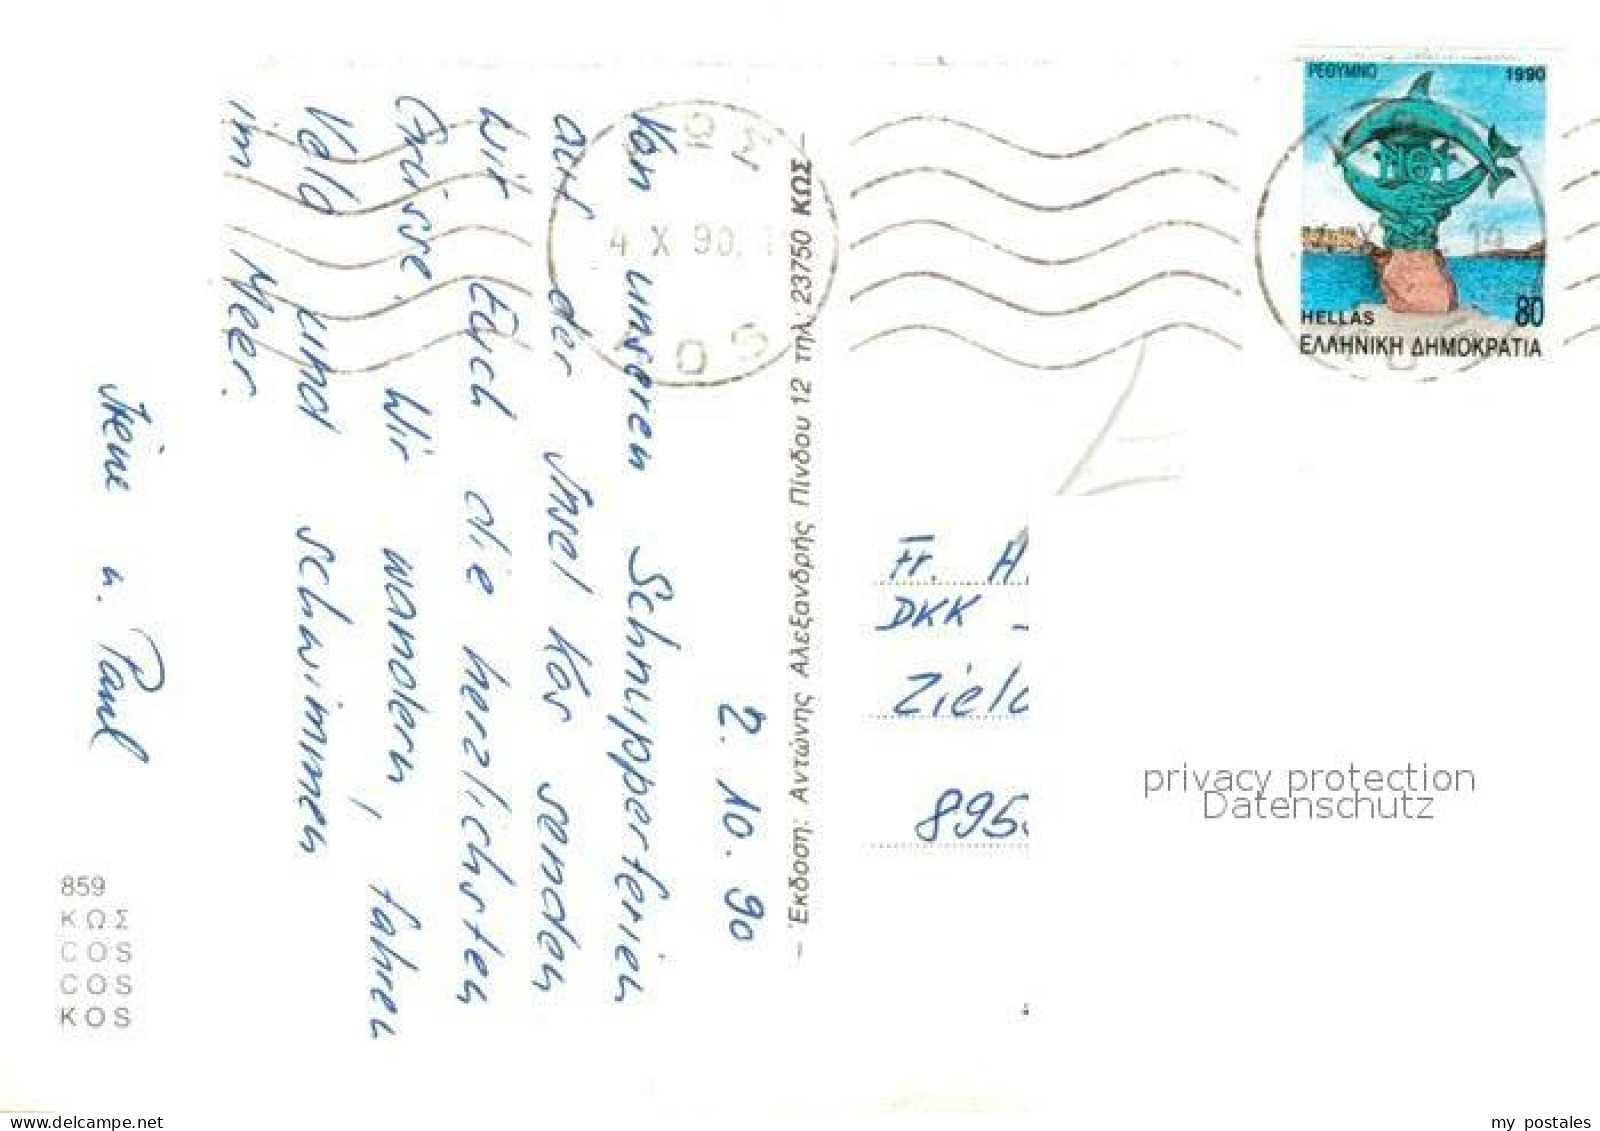 2. 10. 90
Von unseren Schnupperferien
auf der Insel Kos senden
wir Euch die herzlichsten
Grüsse. Wir wandern, fahren
Velo und schwimmen
im Meer.
Irène u. Paul
859
ΚΩΣ
COS
COS
KOS
– Ἔκδοση: Ἀντώνης Ἀλεξανδρής Πίνδου 12 τηλ. 23750 ΚΩΣ –
ΚΩΣ
4 X 90.
KOS
ΡΕΘΥΜΝΟ 1990
HELLAS 80
ΕΛΛΗΝΙΚΗ ΔΗΜΟΚΡΑΤΙΑ
Fr. A.
DKK -
895
privacy protection
Datenschutz
delcampe.net
my_postales